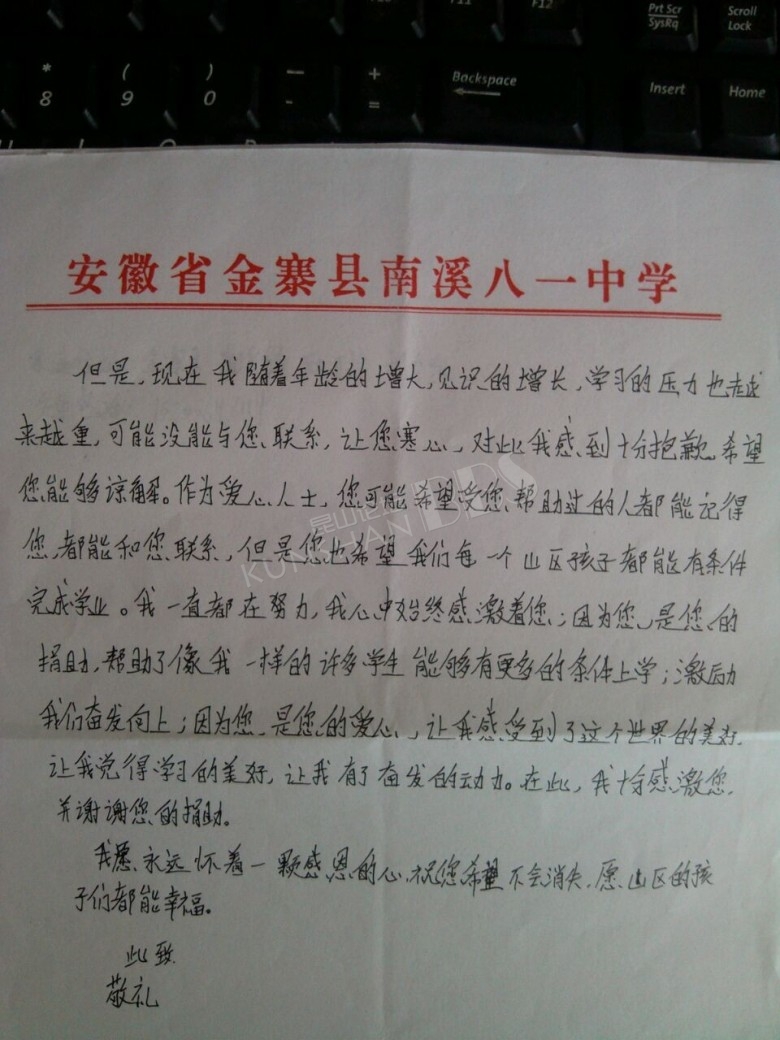 F11
F12
Prt Scr
SysRq
Scroll
Lock
*
8
(
9
)
0
—
-
+
=
Backspace
Insert
Home
安徽省金寨县南溪八一中学
但是,现在我随着年龄的增大,见识的增长,学习的压力也越
来越重,可能没能与您联系,让您寒心,对此我感到十分抱歉,希望
您能够谅解。作为爱心人士,您可能希望受您帮助过的人都能记得
您,都能和您联系,但是您也希望我们每一个山区孩子都能有条件
完成学业。我一直都在努力,我心中始终感激着您;因为您,是您的
捐助,帮助了像我一样的许多学生能够有更多的条件上学;激励
我们奋发向上;因为您,是您的爱心,让我感受到了这个世界的美好,
让我觉得学习的美好,让我有了奋发的动力。在此,我十分感激您,
并谢谢您的捐助。
我愿永远怀着一颗感恩的心,祝您希望不会消失,愿山区的孩
子们都能幸福。
此致
敬礼
昆山论坛
KUNSHAN BBS